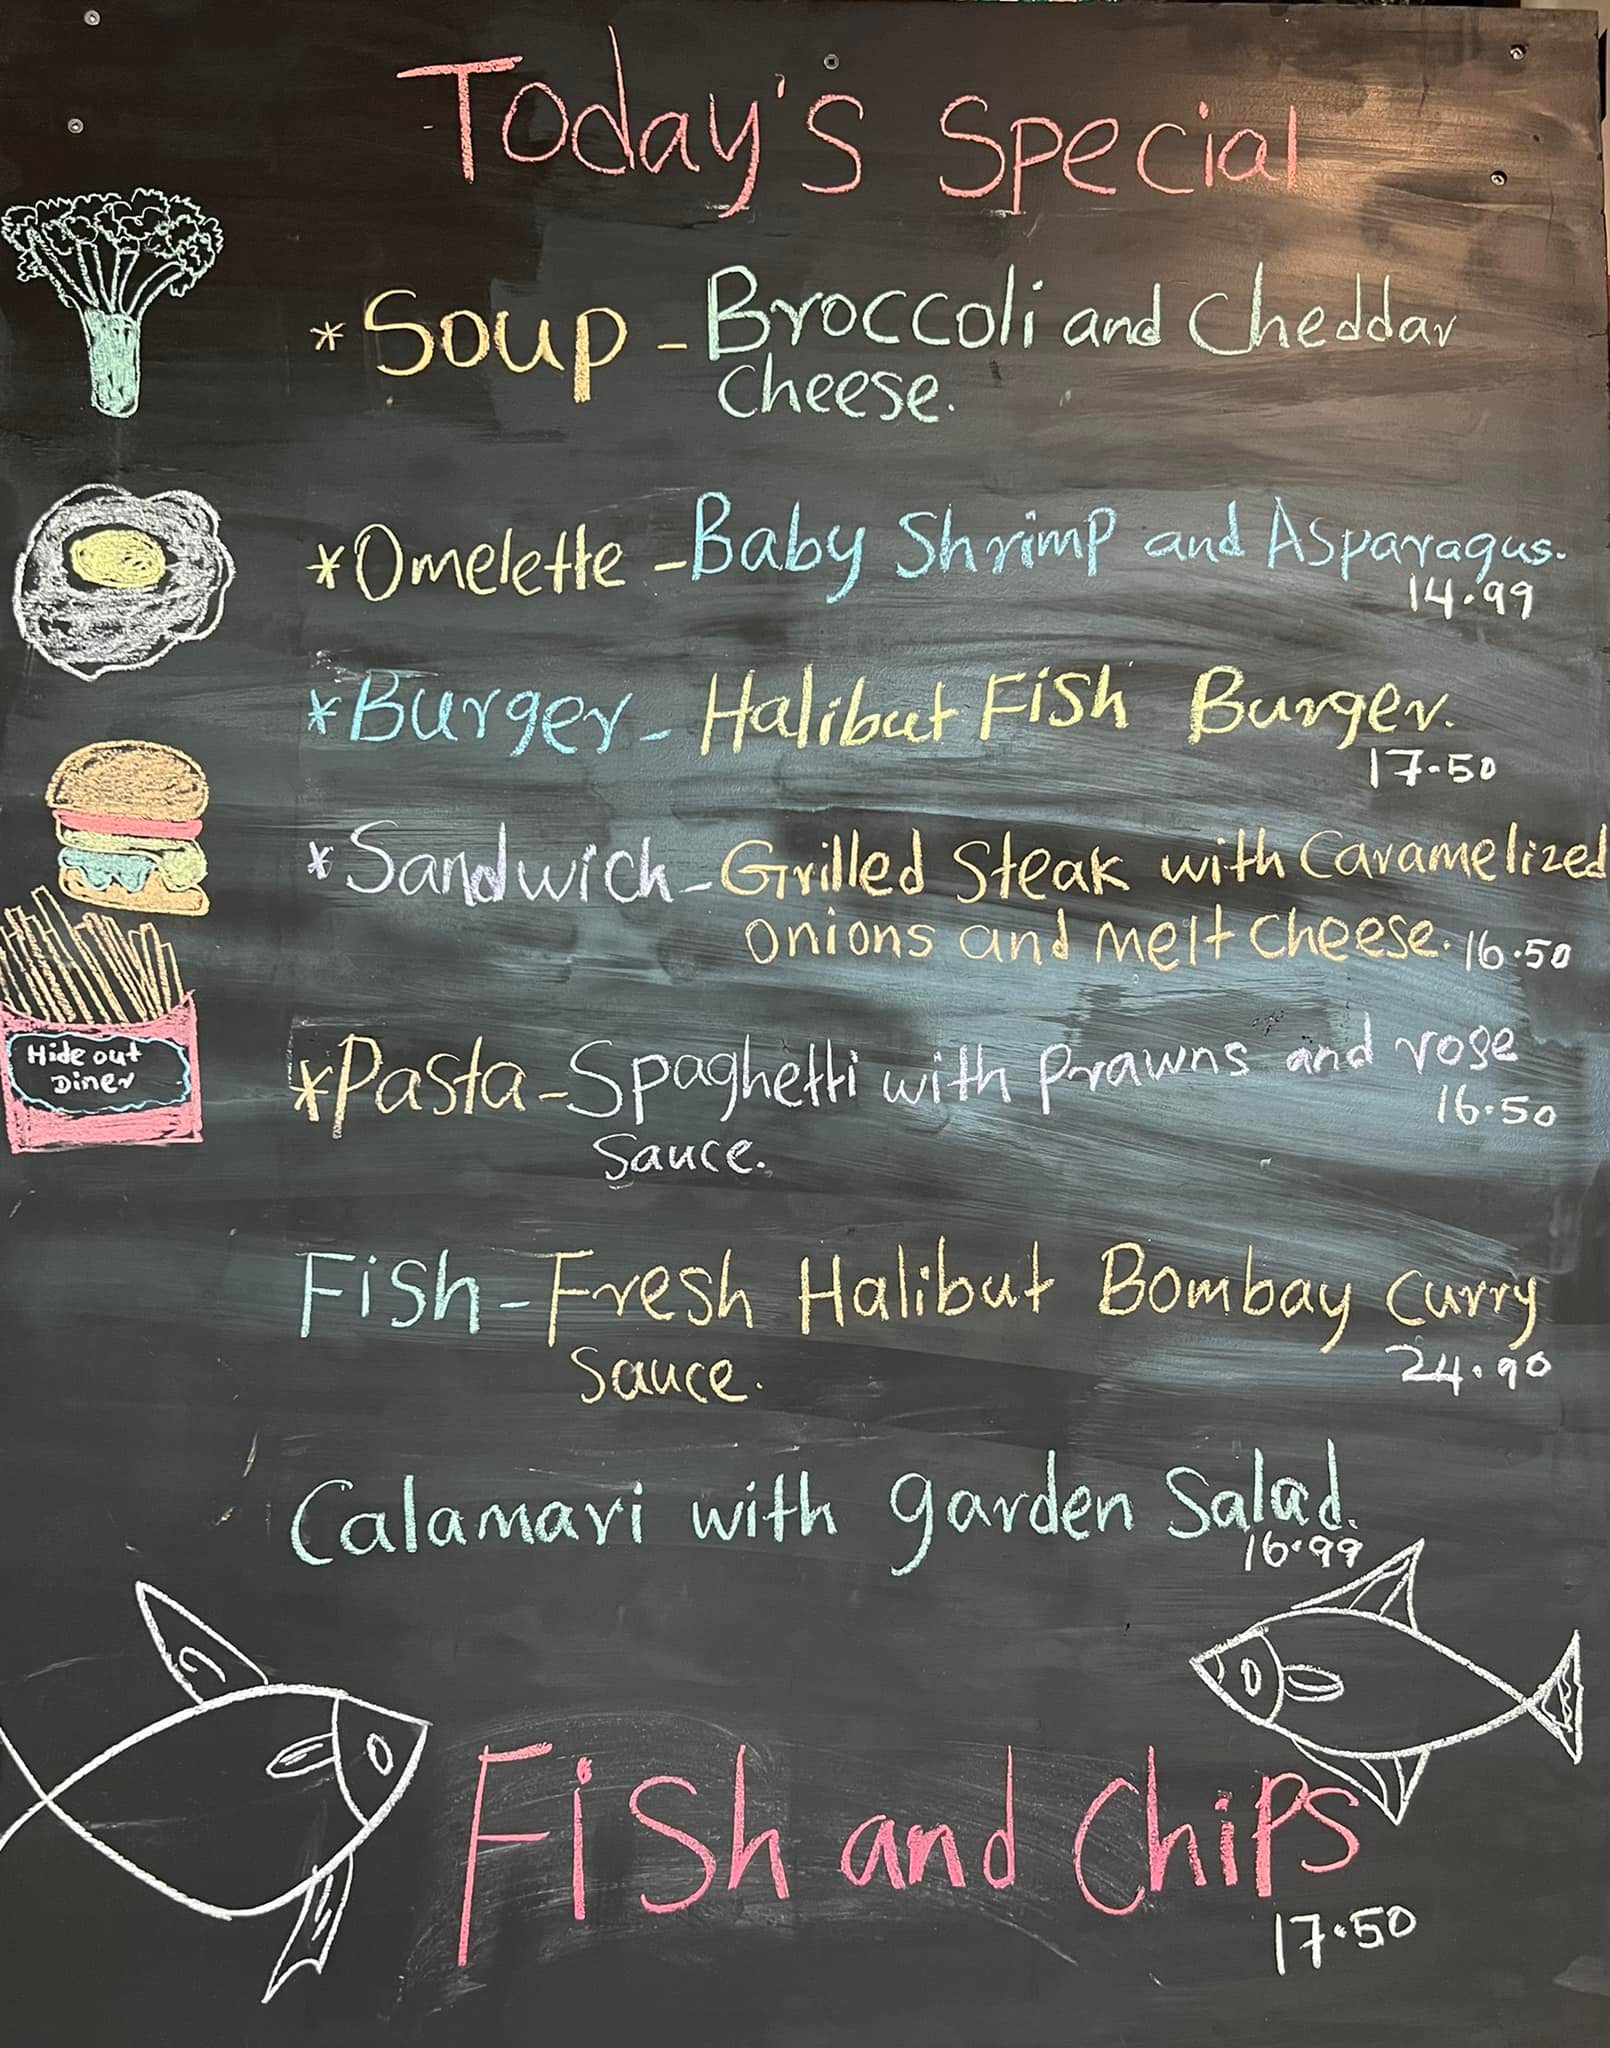 Today's Special
*Soup - Broccoli and Cheddar
Cheese.
*Omelette - Baby Shrimp and Asparagus.
14.99
*Burger - Halibut Fish Burger.
17.50
*Sandwich - Grilled Steak with Caramelized
Onions and melt cheese. 16.50
Hide out
Diner
*Pasta - Spaghetti with Prawns and rose
16.50
Sauce.
Fish - Fresh Halibut Bombay Curry
Sauce. 24.90
Calamari with garden Salad.
16.99
Fish and Chips
17.50